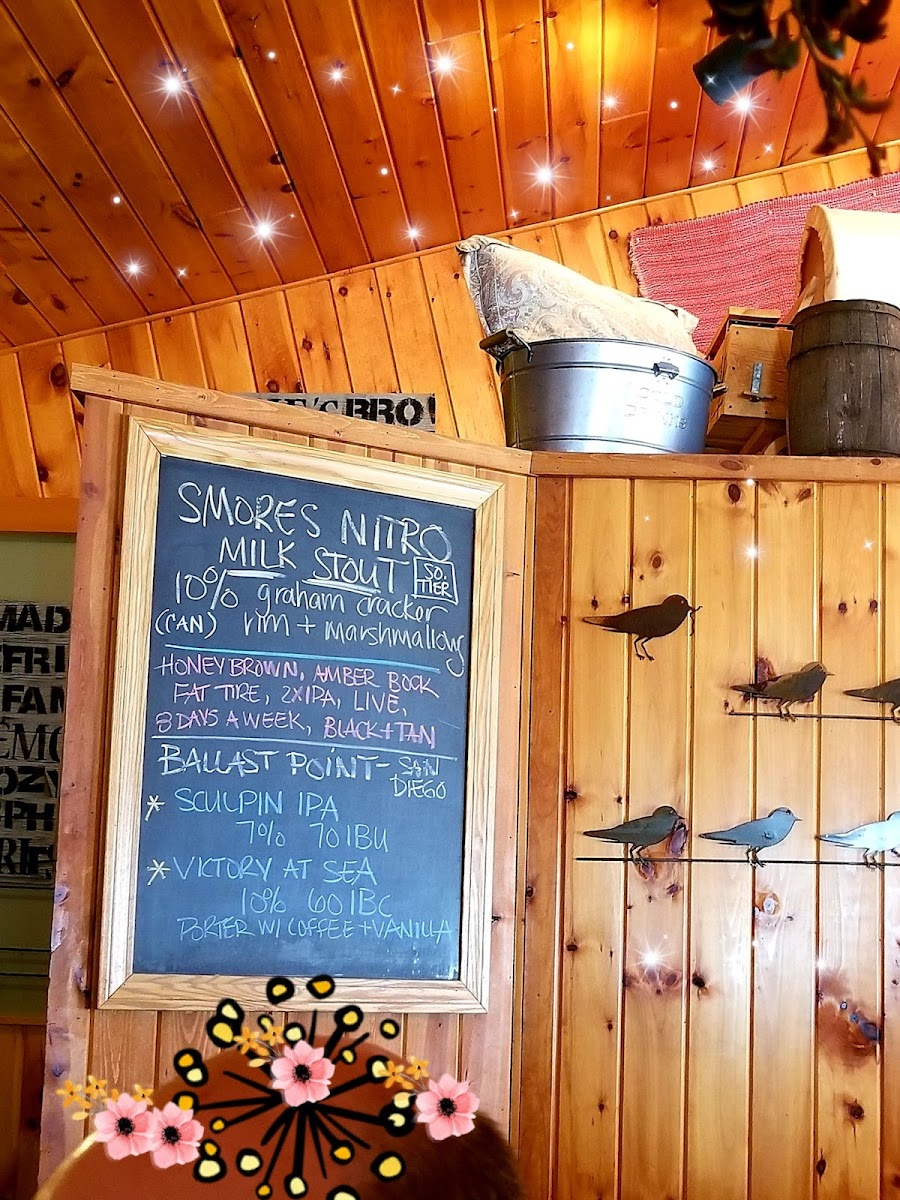 BRO!
SMORES NITRO
MILK STOUT SO. TIER
10% graham cracker
(CAN) rim + marshmallow
HONEY BROWN, AMBER BOCK
FAT TIRE, 2XIPA, LIVE,
8 DAYS A WEEK, BLACK + TAN
BALLAST POINT - SAN DIEGO
* SCULPIN IPA
7% 70 IBU
* VICTORY AT SEA
10% 60 IBC
PORTER W/ COFFEE + VANILLA
MAD
FRI
FAM